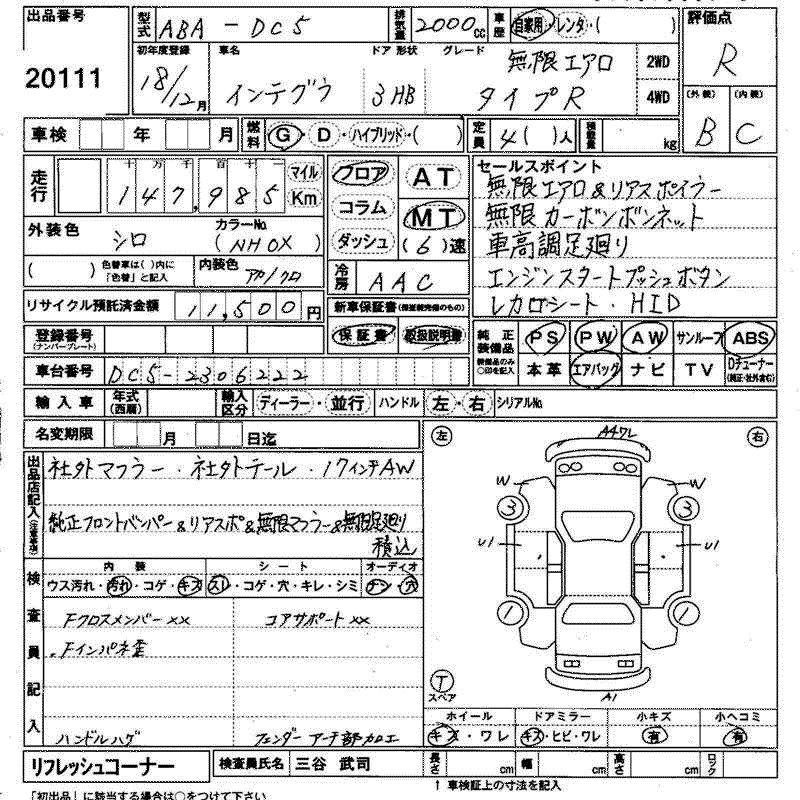 出品番号 20111
型式 ABA - DC5 排気量 2000cc 車歴 自家用・レンタ・( )
評価点 R
(外装) B (内装) C
初年度登録 18/12月 車名 インテグラ ドア 形状 3HB グレード 無限エアロ タイプR 2WD 4WD
車検 年 月 燃料 G・D・ハイブリッド・( ) 定員 4( )人 積載量 kg
走行 十万千百十一 147,985 マイル Km
フロア コラム ダッシュ
AT MT (6)速
外装色 シロ カラーNo. (NH0X)
( ) 色替車は( )内に「色替」と記入 内装色 アカ/クロ
冷房 AAC
セールスポイント
無限エアロ&リアスポイラー
無限カーボンボンネット
車高調足廻り
エンジンスタートプッシュボタン
レカロシート・HID
リサイクル預託済金額 11,500円
新車保証書(保証継続完備のもの)
保証書 取扱説明書
登録番号(ナンバープレート)
車台番号 DC5-2306222
純正装備品 装備品のみ○印を記入 PS PW AW サンルーフ ABS
本革 エアバッグ ナビ TV Dチューナー(純正・社外含む)
輸入車 年式(西暦) 輸入区分 ディーラー・並行 ハンドル 左・右 シリアルNo.
名変期限 月 日迄
出品店記入(注意事項)
社外マフラー・社外テール・17インチAW
純正フロントバンパー&リアスポ&無限マフラー&無限足廻り
積込
検査員記入
内装 シート オーディオ
ウス汚れ・汚れ・コゲ・キズ スレ・コゲ・穴・キレ・シミ ナシ・穴
Fクロスメンバー×× コアサポート××
.Fインパネ歪
ハンドルハゲ フェンダーアーチ部加工
左 右
A4ワレ
W W
3 3
U1 U1
1 1
T スペア
A1
ホイール ドアミラー 小キズ 小ヘコミ
キズ・ワレ キズ・ヒビ・ワレ 有 有
リフレッシュコーナー 検査員氏名 三谷 武司 長さ cm 幅 cm 高さ cm ロック
↑ 車検証上の寸法を記入
「初出品」に該当する場合は○をつけて下さい